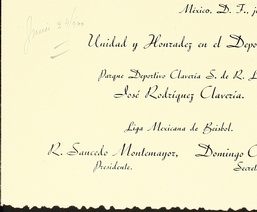 México, D. F., j
Unidad y Honradez en el Depo
Parque Deportivo Clavería S. de R. L
José Rodríguez Clavería.
Liga Mexicana de Beisbol.
R. Saucedo Montemayor, Domingo C
Presidente. Secret